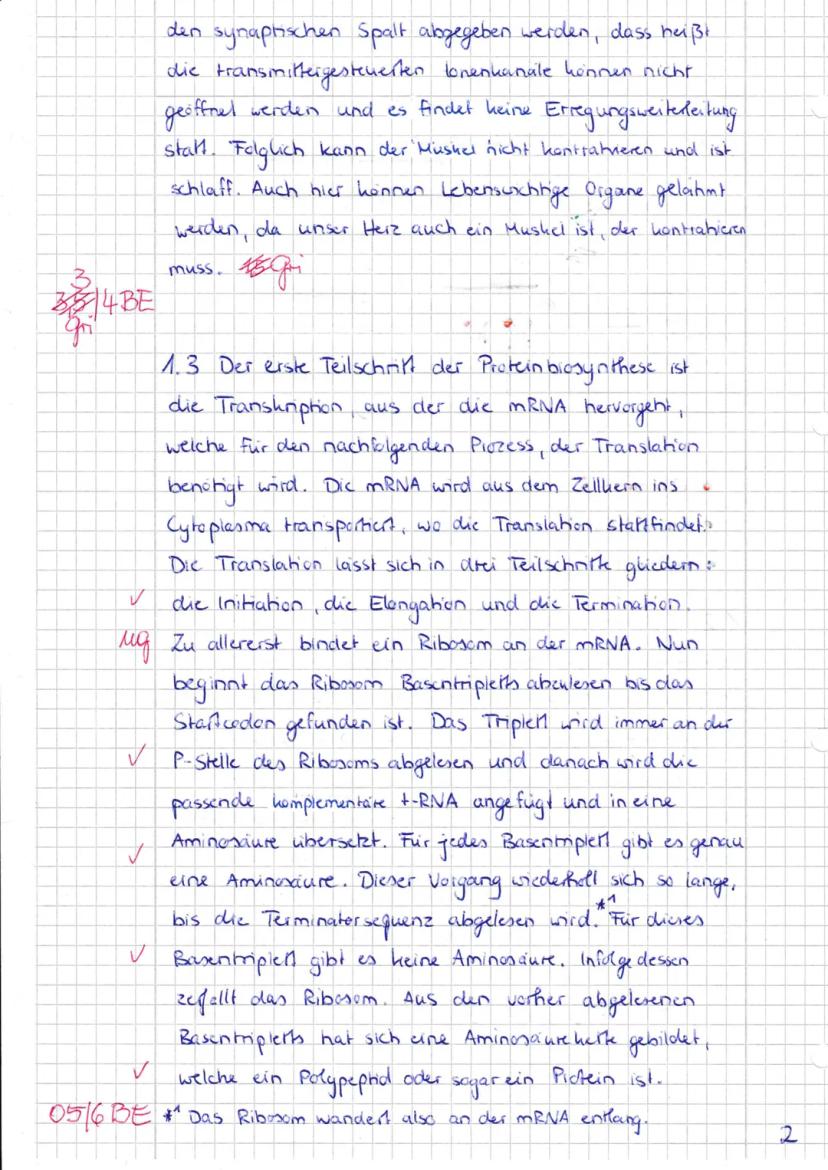 den synaptischen Spalt abgegeben werden, dass heißt
die transmittergesteuerten Ionenkanäle können nicht
geöffnet werden und es findet keine Erregungsweiterleitung
statt. Folglich kann der Muskel nicht kontrahieren und ist
schlaff. Auch hier können Lebenswichtige Organe gelähmt
werden, da unser Herz auch ein Muskel ist, der kontrahieren
muss. gri
3
/4 BE
gri
1.3 Der erste Teilschritt der Proteinbiosynthese ist
die Transkription, aus der die mRNA hervorgeht,
welche für den nachfolgenden Prozess, der Translation
benötigt wird. Die mRNA wird aus dem Zellkern ins
Cytoplasma transportiert, wo die Translation stattfindet.
Die Translation lässt sich in drei Teilschritte gliedern:
✓ die Initiation, die Elongation und die Termination.
ug Zu allererst bindet ein Ribosom an der mRNA. Nun
beginnt das Ribosom Basentripletts abzulesen bis das
Startcodon gefunden ist. Das Triplett wird immer an der
✓ P-Stelle des Ribosoms abgelesen und danach wird die
passende komplementäre t-RNA angefügt und in eine
✓ Aminosäure übersetzt. Für jedes Basentriplett gibt es genau
eine Aminosäure. Dieser Vorgang wiederholt sich so lange,
bis die Terminatorsequenz abgelesen wird.*1 Für dieses
✓ Basentriplett gibt es keine Aminosäure. Infolge dessen
zerfällt das Ribosom. Aus den vorher abgelesenen
Basentripletts hat sich eine Aminosäurekette gebildet,
✓ welche ein Polypeptid oder sogar ein Protein ist.
05/6 BE *1 Das Ribosom wandert also an der mRNA entlang.
2